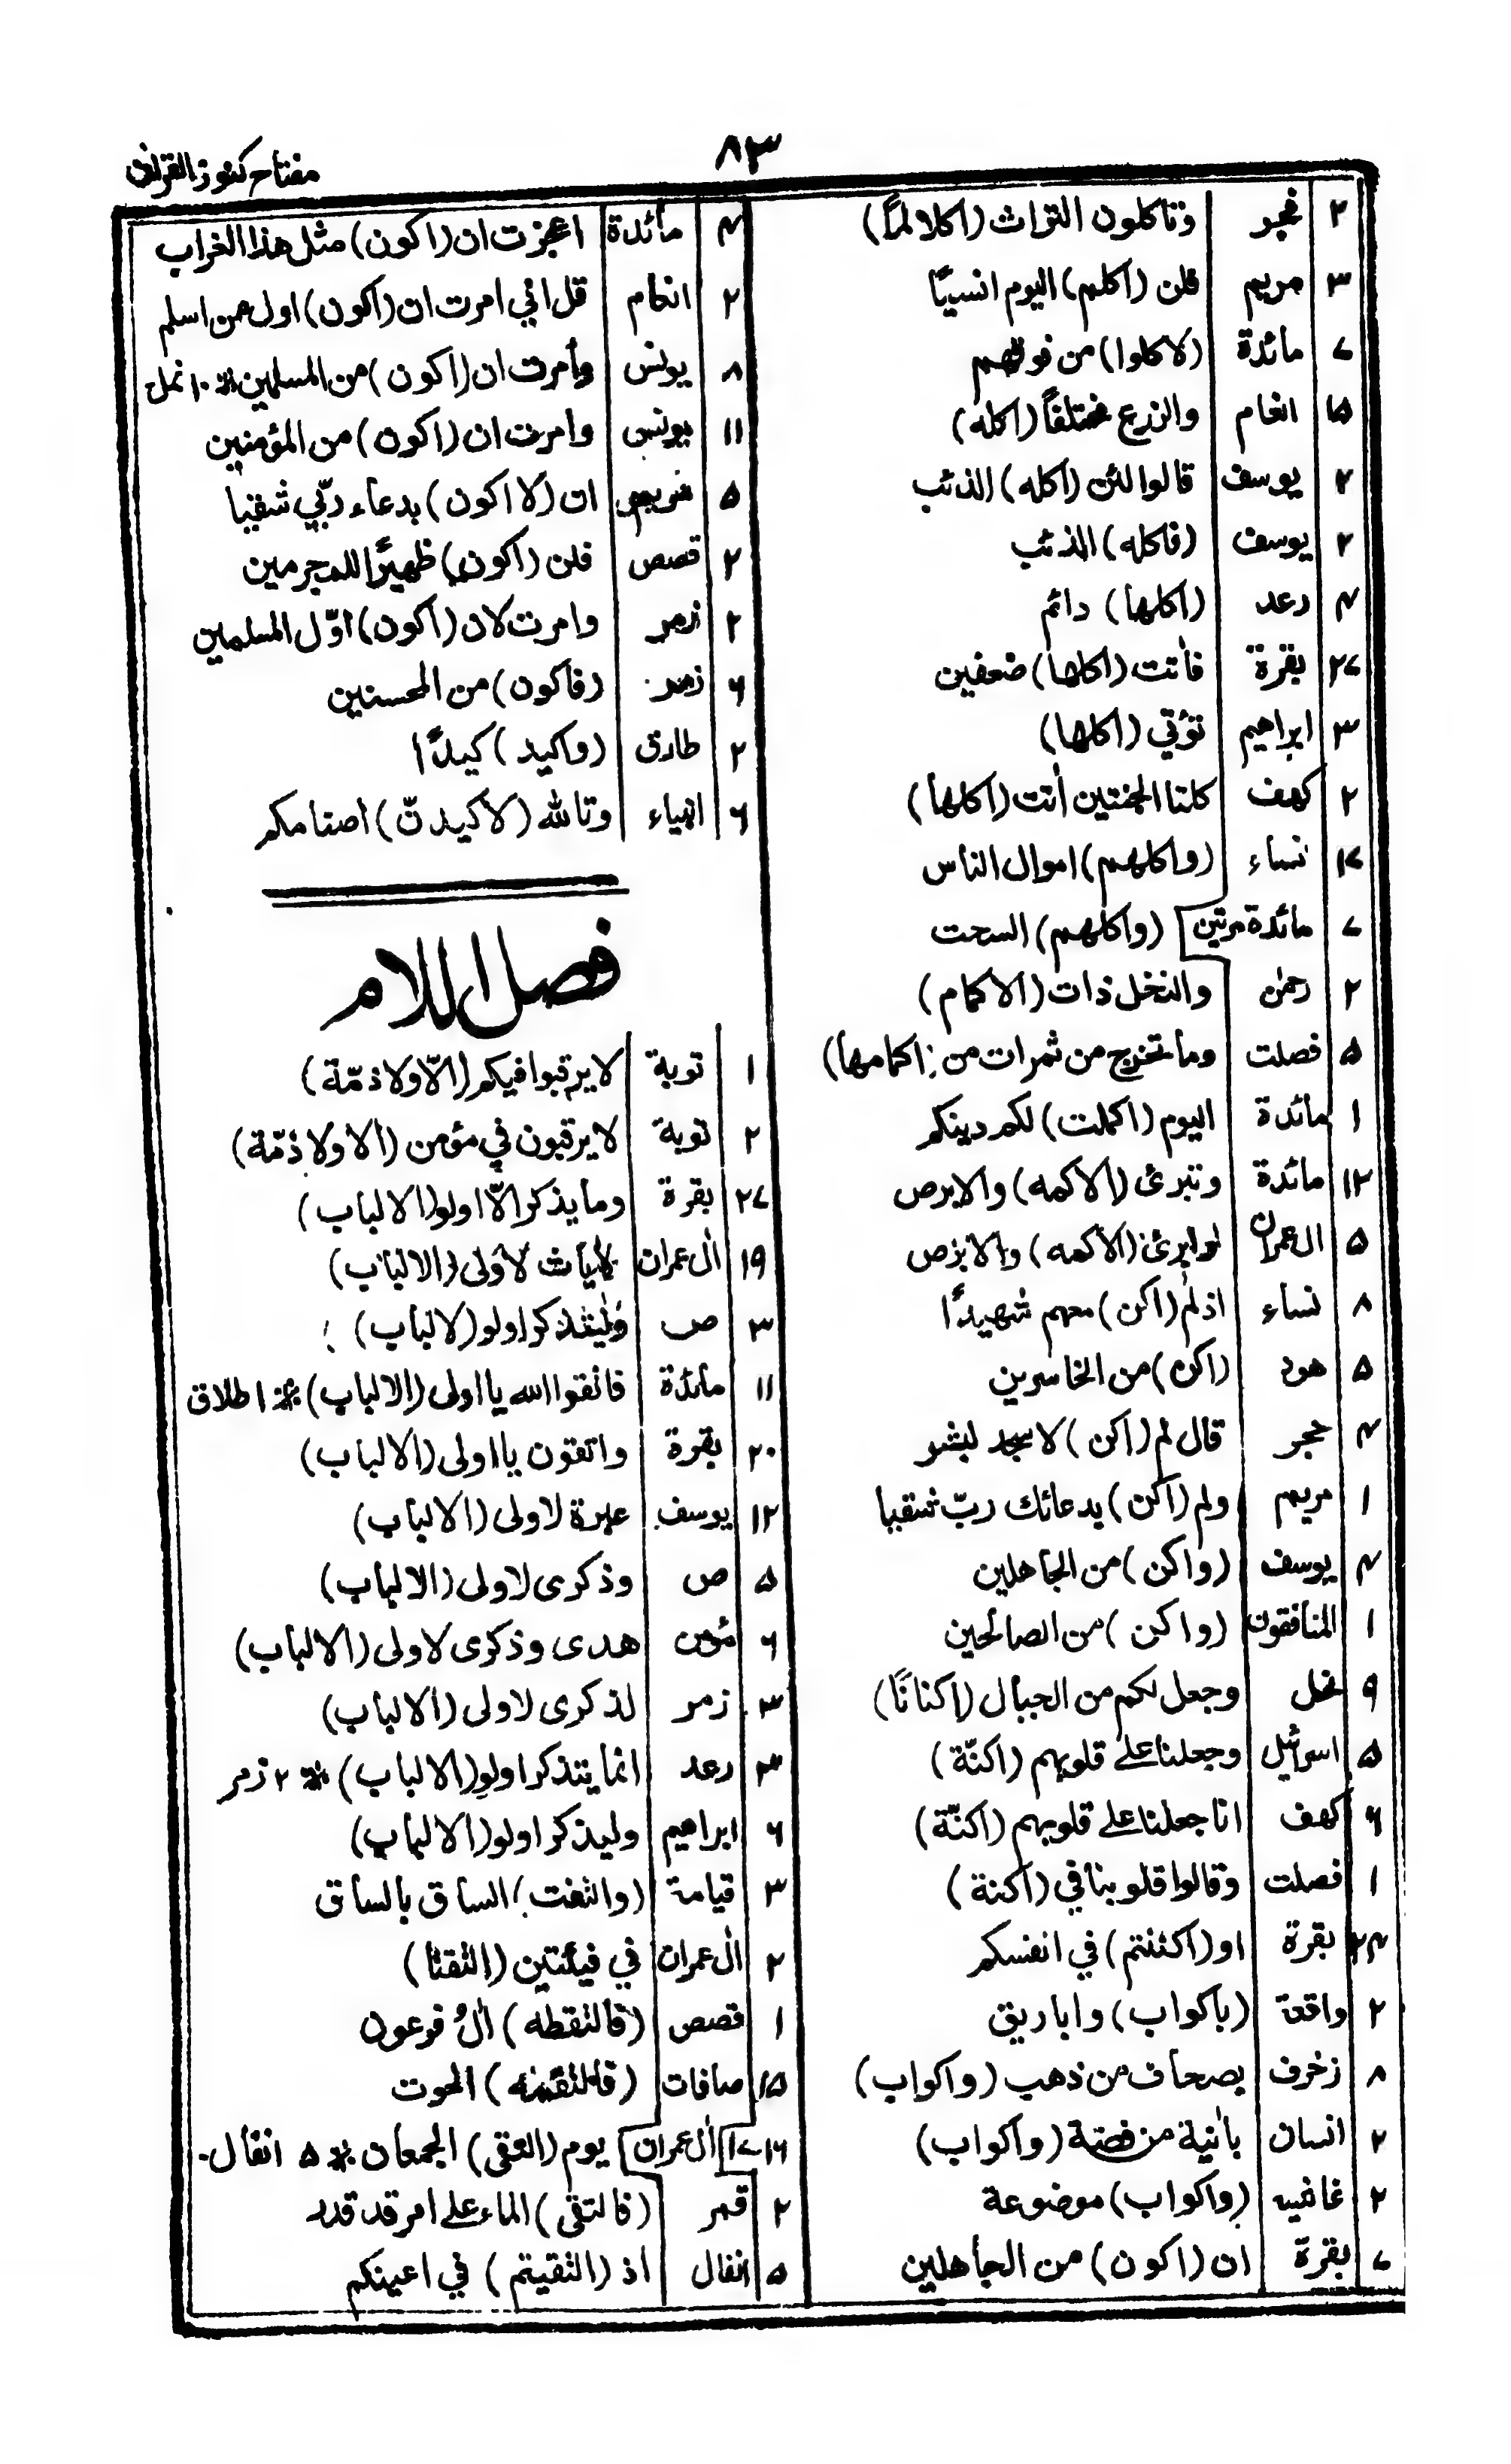 ٨٣
مفتاح كنوز القران
٢ فجر وتاكلون التراث (اكلا لمّاً)
٣ مريم فلن (اكلم) اليوم انسيًا
٧ مائدة (لاكلوا) من فوقهم
١٥ انعام والزرع مختلفاً (اكله)
٢ يوسف قالوا لئن (اكله) الذئب
٢ يوسف (فاكله) الذئب
٤ رعد (اكلها) دائم
٢٧ بقرة فأتت (اكلها) ضعفين
٣ ابراهيم تؤتي (اكلها)
٢ كهف كلتا الجنتين أتت (اكلها)
١٧ نساء (واكلهم) اموال الناس
٧ مائدة مرتين (واكلهم) السحت
٢ رحمن والنخل ذات (الاكمام)
٥ فصلت وما تخرج من ثمرات من (اكمامها)
١ مائدة اليوم (اكملت) لكم دينكم
١٢ مائدة وتبرئ (الاكمه) والابرص
٥ ال عمران وابرئ (الاكمه) والابرص
٨ نساء اذ لم (اكن) معهم شهيدًا
٥ هود (اكن) من الخاسرين
٤ حجر قال لم (اكن) لاسجد لبشر
١ مريم ولم (اكن) بدعائك ربّ شقيا
٤ يوسف (واكن) من الجاهلين
١ المنافقون (واكن) من الصالحين
٩ نحل وجعل لكم من الجبال (اكنانًا)
٥ اسرائيل وجعلنا على قلوبهم (اكنّة)
٦ كهف انا جعلنا على قلوبهم (اكنّة)
١ فصلت وقالوا قلوبنا في (اكنة)
٢٤ بقرة او (اكننتم) في انفسكم
٢ واقعة (باكواب) واباريق
٨ زخرف بصحاف من ذهب (واكواب)
٢ انسان بانية من فضة (واكواب)
٢ غاشيه (واكواب) موضوعة
٧ بقرة ان (اكون) من الجاهلين
٤ مائدة اعجزت ان (اكون) مثل هذا الغراب
٢ انعام قل اني امرت ان (اكون) اول من اسلم
٨ يونس وأمرت ان (اكون) من المسلمين ١٠ نمل
١١ يونس وامرت ان (اكون) من المؤمنين
٥ مريم ان (لا اكون) بدعاء ربّي شقيا
٢ قصص فلن (اكون) ظهيرًا للمجرمين
٢ زمر وامرت لان (اكون) اوّل المسلمين
٦ زمر (فاكون) من المحسنين
٢ طارق (واكيد) كيدًا
٦ انبياء وتالله (لاكيدنّ) اصنامكم
فصل اللام
١ توبة لا يرقبوا فيكم (الّا ولا ذمّة)
٢ توبة لا يرقبون في مؤمن (الا ولا ذمّة)
٢٧ بقرة وما يذكر الّا اولو (الالباب)
١٩ ال عمران لأيات لاولى (الالباب)
٣ ص وليتذكر اولو (لالباب)
١١ مائدة فاتقوا الله يا اولى (الالباب) ١ طلاق
٢٠ بقرة واتقون يا اولى (الالباب)
١٢ يوسف عبرة لاولى (الالباب)
٥ ص وذكرى لاولى (الالباب)
٦ مؤمن هدى وذكرى لاولى (الالباب)
٣ زمر لذكرى لاولى (الالباب)
٣ رعد انما يتذكر اولو (الالباب) ٢ زمر
٦ ابراهيم وليذكر اولو (الالباب)
٣ قيامة (والتفت) الساق بالساق
٢ ال عمران في فيئتين (التقتا)
١ قصص (فالتقطه) ال فرعون
١٥ صافات (فالتقمه) الحوت
١٧-١٦ ال عمران يوم (التقى) الجمعان ٥ انفال
٢ قمر (فالتقى) الماء على امر قد قدر
٥ انفال اذ (التقيتم) في اعينكم